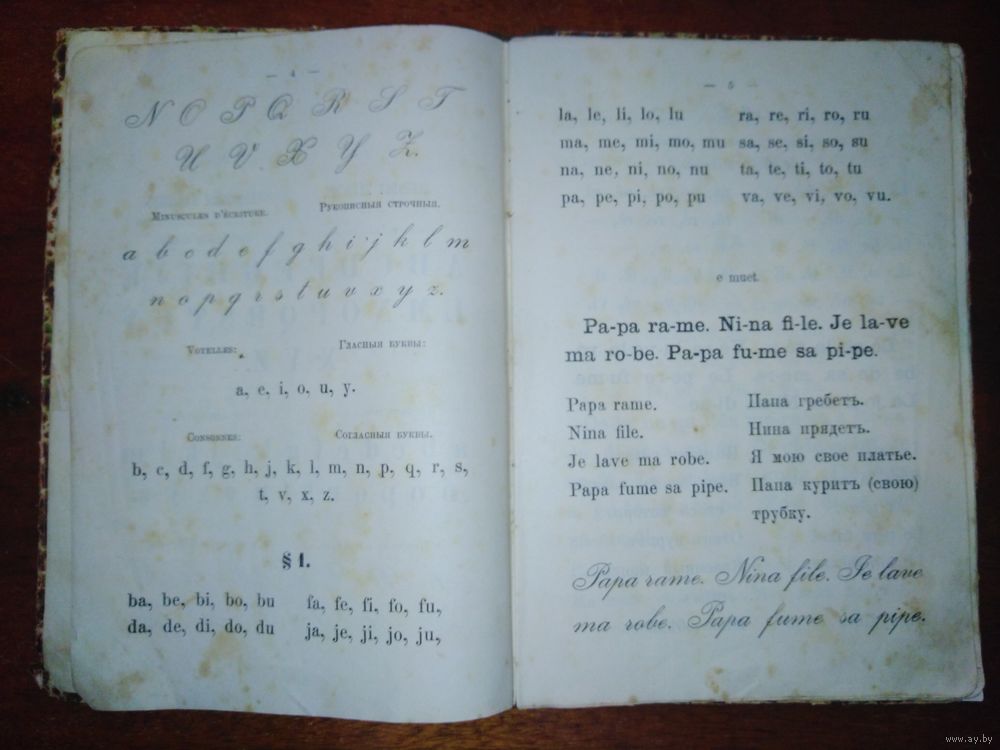 — 4 —
N O P Q R S T
U V X Y Z.
Minuscules d'écriture. Рукописныя строчныя.
a b c d e f g h i j k l m
n o p q r s t u v x y z.
Voyelles: Гласныя буквы:
a, e, i, o, u, y.
Consonnes: Согласныя буквы.
b, c, d, f, g, h, j, k, l, m, n, p, q, r, s,
t, v, x, z.
§ 1.
ba, be, bi, bo, bu fa, fe, fi, fo, fu,
da, de, di, do, du ja, je, ji, jo, ju,
— 5 —
la, le, li, lo, lu ra, re, ri, ro, ru
ma, me, mi, mo, mu sa, se, si, so, su
na, ne, ni, no, nu ta, te, ti, to, tu
pa, pe, pi, po, pu va, ve, vi, vo, vu.
e muet.
Pa-pa ra-me. Ni-na fi-le. Je la-ve
ma ro-be. Pa-pa fu-me sa pi-pe.
Papa rame. Папа гребетъ.
Nina file. Нина прядетъ.
Je lave ma robe. Я мою свое платье.
Papa fume sa pipe. Папа куритъ (свою)
трубку.
Papa rame. Nina file. Je lave
ma robe. Papa fume sa pipe.
www.ay.by